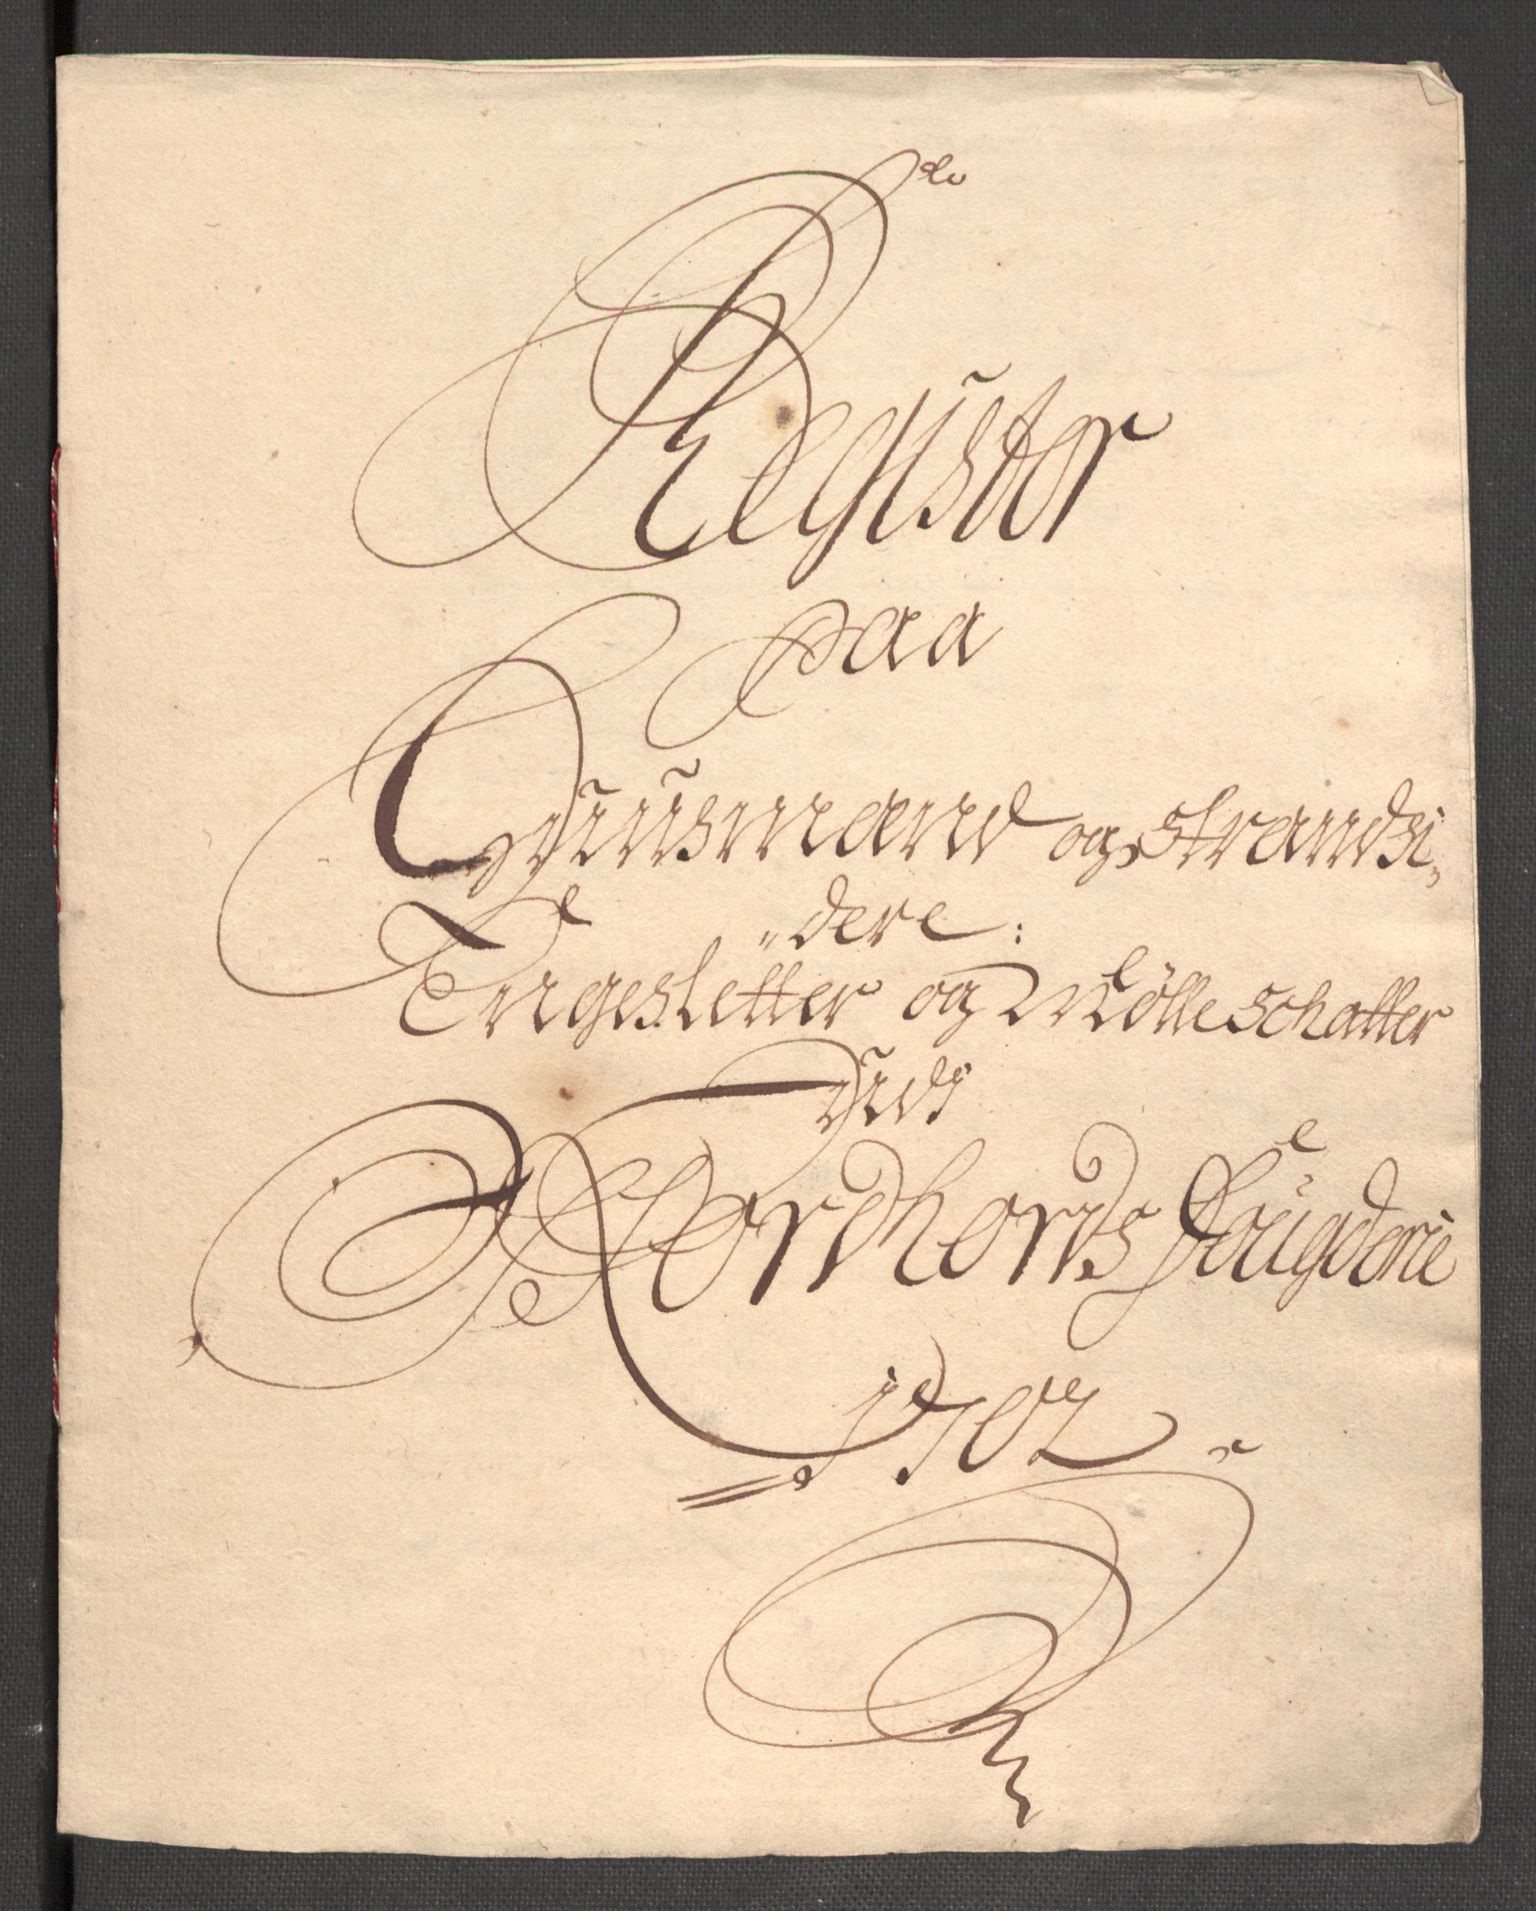 Register
paa
Huusmænd og strandsi„
„dere:
Engesletter og Mölle schatter
udi
Nordhords Fougderie
1702